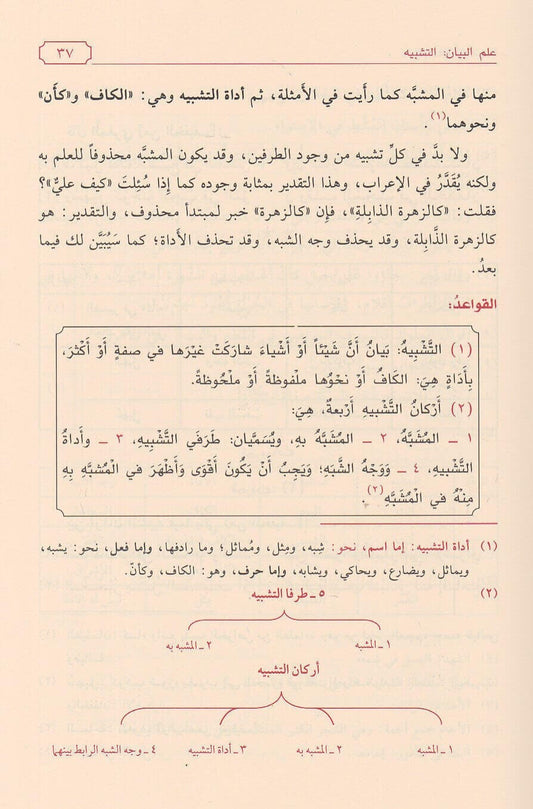 علم البيان: التشبيه
٣٧
منها في المشبَّه كما رأيت في الأمثلة، ثم أداة التشبيه وهي: «الكاف» و«كأن»
ونحوهما(١).
ولا بدَّ في كلِّ تشبيه من وجود الطرفين، وقد يكون المشبَّه محذوفاً للعلم به
ولكنه يُقَدَّرُ في الإعراب، وهذا التقدير بمثابة وجوده كما إذا سُئِلتَ «كيف عليٌّ»؟
فقلت: «كالزهرة الذابِلةِ»، فإن «كالزهرة» خبر لمبتدأ محذوف، والتقدير: هو
كالزهرة الذَّابِلة، وقد يحذف وجه الشبه، وقد تحذف الأداة؛ كما سَيُبَيَّن لك فيما
بعدُ.
القواعدُ:
(١) التَّشْبِيهُ: بَيَانُ أَنَّ شَيْئاً أَوْ أَشْياءَ شارَكَتْ غيْرَها في صفةٍ أوْ أكثرَ،
بِأَدَاةٍ هِيَ: الكَافُ أَوْ نحْوُها ملْفوظةً أوْ ملْحُوظةً.
(٢) أَرْكانُ التَّشْبيهِ أرْبعةٌ، هِيَ:
١ ـ المُشَبَّهُ، ٢ ـ المُشَبَّهُ بهِ، ويُسَمَّيان: طَرفَي التَّشْبِيهِ، ٣ ـ وأداةُ
التَّشْبِيهِ، ٤ ـ وَوَجْهُ الشَّبَهِ؛ وَيَجِبُ أَنْ يَكُونَ أَقْوَى وَأَظْهَرَ في المُشبَّهِ بِهِ
مِنْهُ في الْمُشَبَّهِ(٢).
(١) أداة التشبيه: إما اسم، نحو: شِبه، ومِثل، ومُماثل؛ وما رادفها، وإما فعل، نحو: يشبه،
ويماثل، ويضارع، ويحاكي، ويشابه، وإما حرف، وهو: الكاف، وكأنّ.
(٢)
٥ ـ طرفا التشبيه
١ ـ المشبه
٢ ـ المشبه به
أركان التشبيه
١ ـ المشبه
٢ ـ المشبه به
٣ ـ أداة التشبيه
٤ ـ وجه الشبه الرابط بينهما